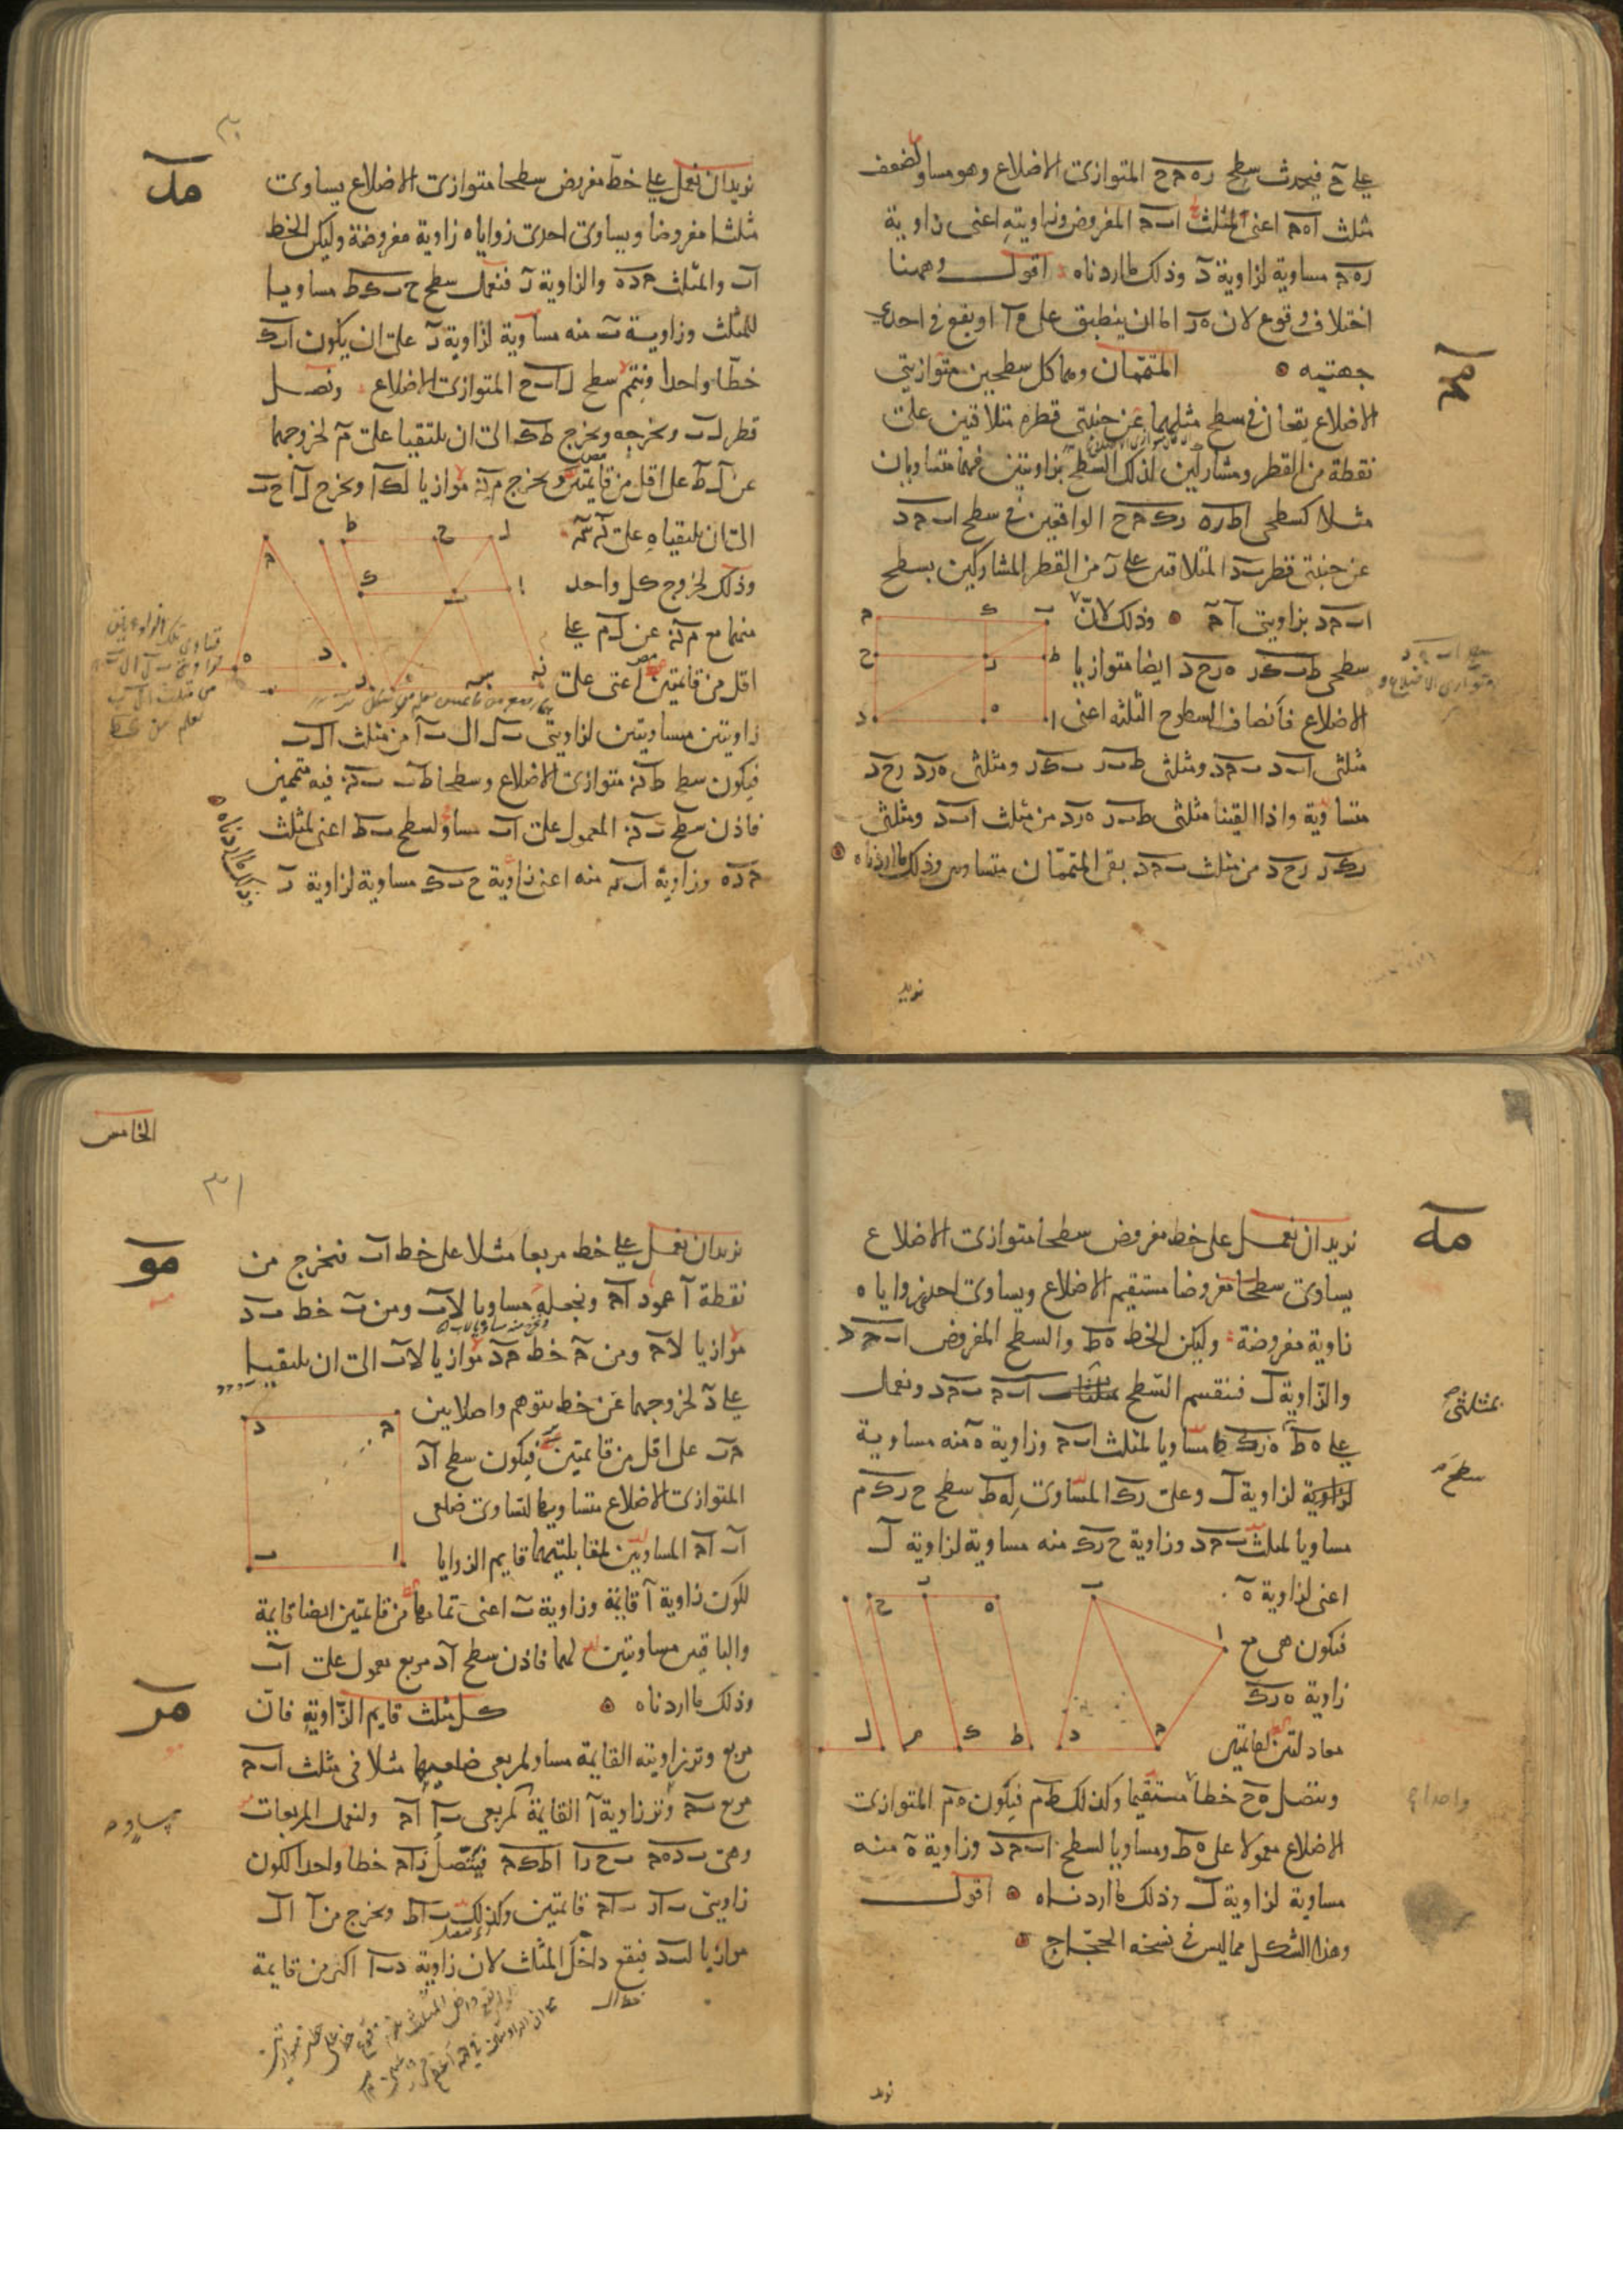 على ح فيحدث سطح ره ح ح المتوازى الاضلاع وهو مساو لضعف
مثلث اه ح اعنى لمثلث اب ح المفروض وزاويته اعنى زاوية
ره ح مساوية لزاوية د وذلك ما اردناه اقول وههنا
اختلاف وقوع لان ه ر اما ان ينطبق على ه ا او يقع فى احدى
جهتيه
مج
المتممان وهما كل سطحين متوازيى
الاضلاع يقعان فى سطح مثلهما عن جنبتى قطره متلاقيين على
نقطة من القطر ومشاركين لذلك السطح بزاويتين فهما متساويان
مثلا كسطحى اط ره رك ح ح الواقعين فى سطح اب ح د
عن جنبتى قطر ب د المتلاقيين على ر من القطر المشاركين بسطح
اب ح د بزاويتى ا ح وذلك لان
سطحى ط ب ك ر ه ر ح د ايضا متوازيا
الاضلاع فانصاف السطوح الثلثه اعنى
مثلثى اب د ب ح د ومثلثى ط ب ر ب ك ر ومثلثى ه ر د ر ح د
متساوية واذا القينا مثلثى ط ب ر ه ر د من مثلث اب د ومثلثى
ب ك ر ر ح د من مثلث ب ح د بقى المتممان متساويين وذلك ما اردناه
نريد
مد
نريد ان نعمل على خط مفروض سطحا متوازى الاضلاع يساوى
مثلثا مفروضا ويساوى احدى زواياه زاوية مفروضة وليكن الخط
اب والمثلث ح د ه والزاوية ر فنعمل سطح ح ب ك ط مساويا
للمثلث وزاوية ب منه مساوية لزاوية ر على ان يكون اب ك
خطا واحدا ونتمم سطح ل اب ح المتوازى الاضلاع ونصل
قطر ل ب ونخرجه ونخرج ط ك الى ان يلتقيا على م لخروجهما
عن ل ط على اقل من قايمتين ونخرج م ن موازيا لك ا ونخرج ل ا ح ب
الى ان يلتقياه على ن س
وذلك لخروج كل واحد
منهما مع م ن عن ل م على
اقل من قايمتين اعنى على
زاويتين مساويتين لزاويتى ب ل ا ل ب ا من مثلث ال ب
فيكون سطح ط ن متوازى الاضلاع وسطحا ط ب ب ن فيه متممين
فاذن سطح ب ن المعمول على اب مساو لسطح ب ط اعنى لمثلث
ح د ه وزاوية اب س منه اعنى زاوية ح ب ك مساوية لزاوية ر
وذلك ما اردناه
مه
نريد ان نعمل على خط مفروض سطحا متوازى الاضلاع
يساوى سطحا مفروضا مستقيم الاضلاع ويساوى احدى زواياه
زاوية مفروضة وليكن الخط ه ط والسطح المفروض اب ح د
والزاوية ل فنقسم السطح اب ح ب ح د ونعمل
بمثلثى
على ه ط ه ر ك ط مساويا لمثلث اب ح وزاوية ه منه مساوية
سطح
لزاوية ل وعلى ر ك المساوى له ط سطح ح ر ك م
مساويا لمثلث ب ح د وزاوية ح ر ك منه مساوية لزاوية ل
اعنى لزاوية ه
فيكون هى مع
زاوية ه ر ك
معادلتين لقائمتين
ويتصل ه ح خطا مستقيما وكذلك ط م فيكون ه م المتوازى
الاضلاع معمولا على ه ط ومساويا لسطح اب ح د وزاوية ه منه
مساوية لزاوية ل وذلك ما اردناه اقول
وهذا الشكل مما ليس فى نسخه الحجاج
الخامس
٣١
مو
نريد ان نعمل على خط مربعا مثلا على خط اب فنخرج من
نقطة ا عمود اح ونجعله مساويا لاب ومن ب خط ب د
موازيا لاح ومن ح خط ح د موازيا لاب الى ان يلتقيا
على د لخروجهما عن خط يتوهم واصلا بين
ح ب على اقل من قايمتين فيكون سطح اد
المتوازى الاضلاع متساويها لتساوى ضلعى
اب اح المساويين لمقابليهما قايم الزوايا
لكون زاوية ا قايمة وزاوية ب اعنى تمامها من قايمتين ايضا قايمة
والباقيين مساويتين لهما فاذن سطح اد مربع معمول على اب
وذلك ما اردناه
مز
كل مثلث قايم الزاوية فان
مربع وتر زاويته القايمة مساو لمربعى ضلعيها مثلا فى مثلث اب ح
مربع ب ح وتر زاوية ا القايمة لمربعى ب ا ا ح ولنعمل المربعات
وهى ب د ه ح ب ح ر ا اط ك ح فيتصل ر اح خطا واحدا لكون
زاويتى ب ار ب اح قايمتين وكذلك ب اط ونخرج من ا ال
موازيا لب د فيقع داخل المثلث لان زاوية د ب ا اكبر من قايمة